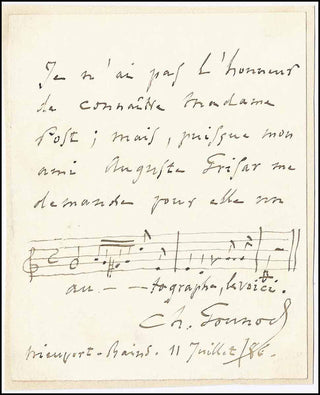 Je n'ai pas l'honneur
de connaître Madame
Post ; mais, puisque mon
ami Auguste Grisar me
demande pour elle un
au - - tographe, le voici.
Ch. Gounod
Nieuport-Bains. 11 Juillet /86.